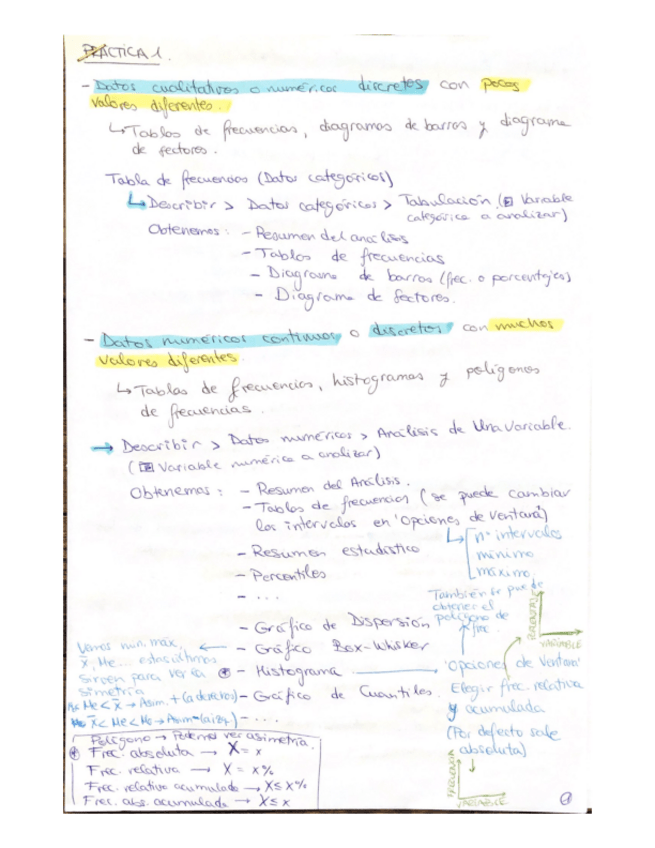 PRÁCTICA 1.
- Datos cualitativos o numéricos discretos con pocos
valores diferentes.
↳ Tablas de frecuencias, diagramas de barras y diagrama
de sectores.
Tabla de frecuencias (Datos categóricos)
↳ Describir > Datos categóricos > Tabulación (Variable
categórica a analizar)
Obtenemos: - Resumen del análisis
- Tablas de frecuencias
- Diagrama de barras (frec. o porcentajes)
- Diagrama de sectores.
- Datos numéricos continuos o discretos con muchos
valores diferentes.
↳ Tablas de frecuencias, histogramas y polígonos
de frecuencias.
→ Describir > Datos numéricos > Análisis de Una Variable.
(Variable numérica a analizar)
Obtenemos: - Resumen del Análisis.
- Tablas de frecuencias (se puede cambiar
los intervalos en 'Opciones de Ventana')
↳ nº intervalos
mínimo
máximo
- Resumen estadístico
- Percentiles
- ...
También se puede
obtener el
polígono de
frec.
- Gráfico de Dispersión
- Gráfico Box-Whisker
- Histograma
- Gráfico de Cuantiles.
- ....
Vemos min, máx,
x̄, Me... estos últimos
sirven para ver la
simetría
Me < x̄ → Asim. + (a derechas)
x̄ < Me < Mo → Asim - (a izq.)
'Opciones de Ventana'
Elegir frec. relativa
y acumulada
(Por defecto sale
absoluta)
VARIABLE
FRECUENCIA
VARIABLE
Polígono → Podemos ver asimetría.
Frec. absoluta → X = x
Frec. relativa → X = x%
Frec. relativa acumulada → X ≤ x%
Frec. abs. acumulada → X ≤ x
1